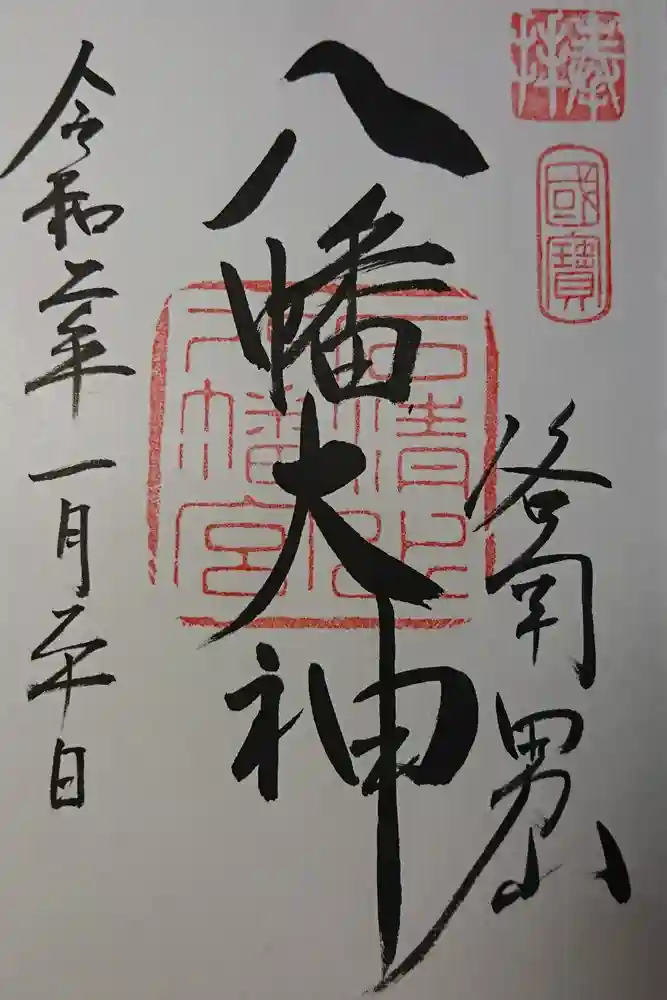 奉拝
國寶
洛南男山
八幡大神
石清水
八幡宮
令和二年一月二十日